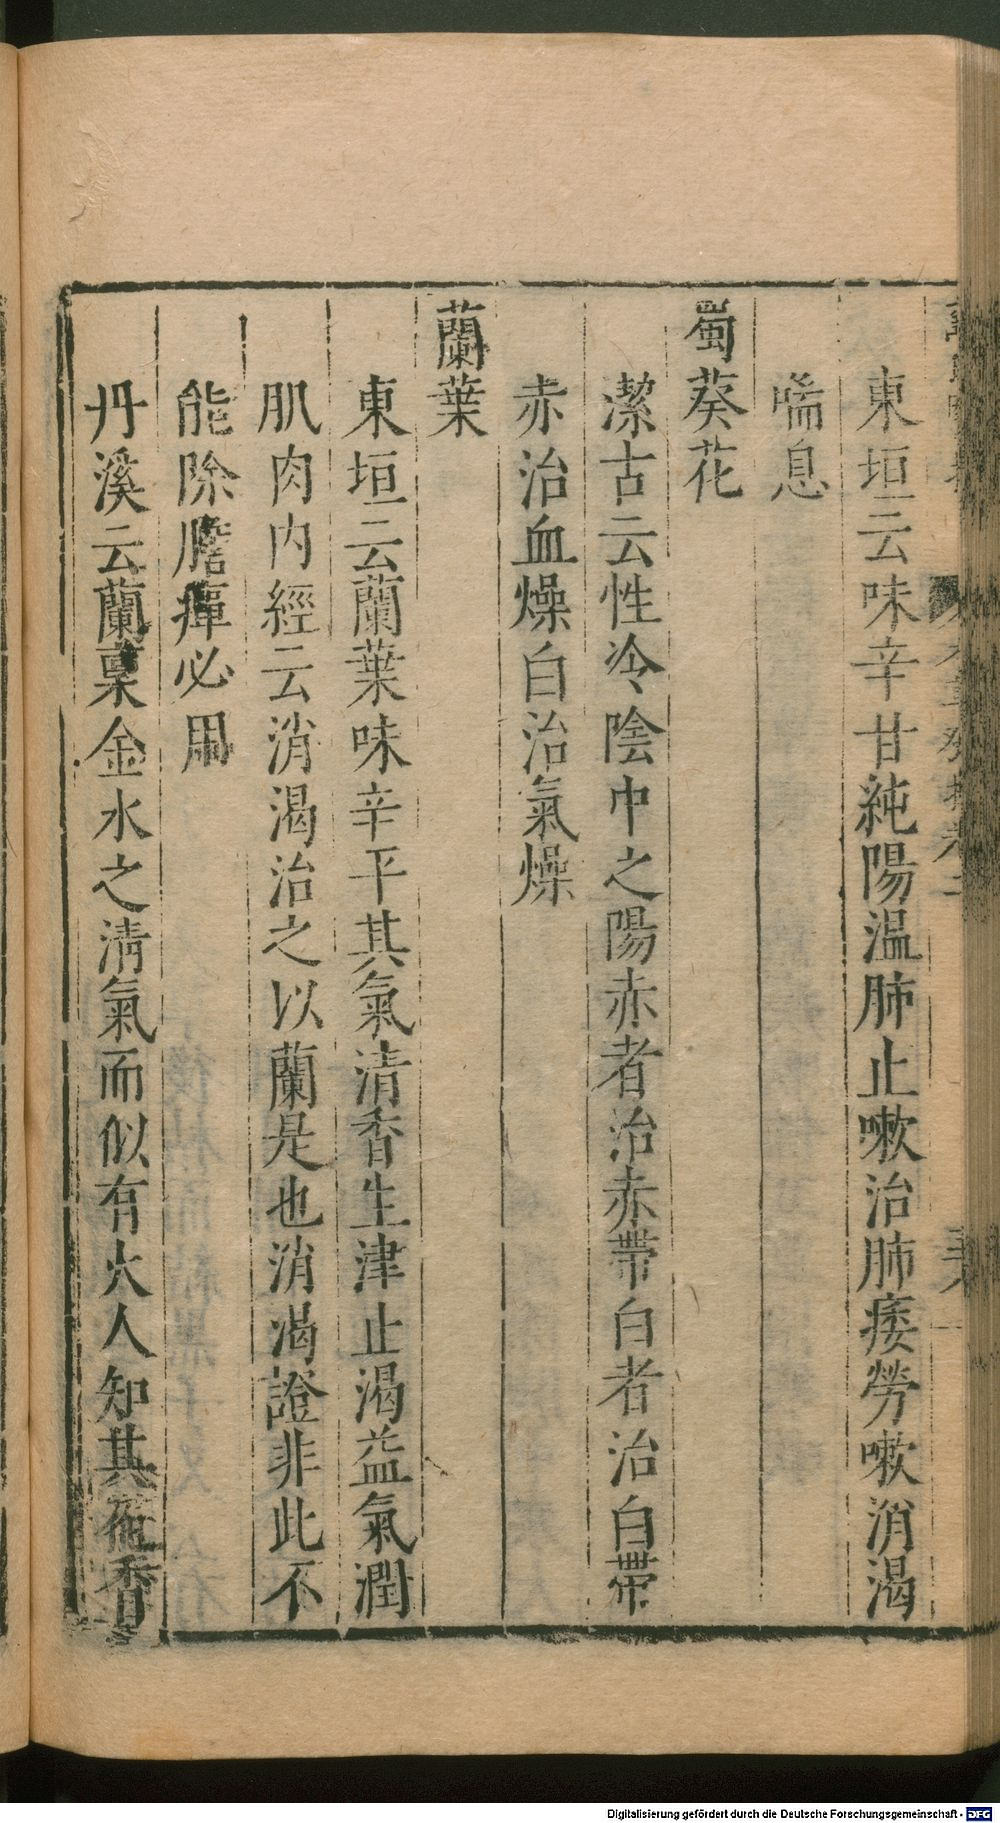 東垣云味辛甘純陽温肺止嗽治肺痿勞嗽消渴
喘息
蜀葵花
潔古云性冷陰中之陽赤者治赤帶白者治白帶
赤治血燥白治氣燥
蘭葉
東垣云蘭葉味辛平其氣清香生津止渴益氣潤
肌肉内經云消渴治之以蘭是也消渴證非此不
能除膽癉必用
丹溪云蘭稟金水之清氣而似有火人知其花香
Digitalisierung gefördert durch die Deutsche Forschungsgemeinschaft - DFG